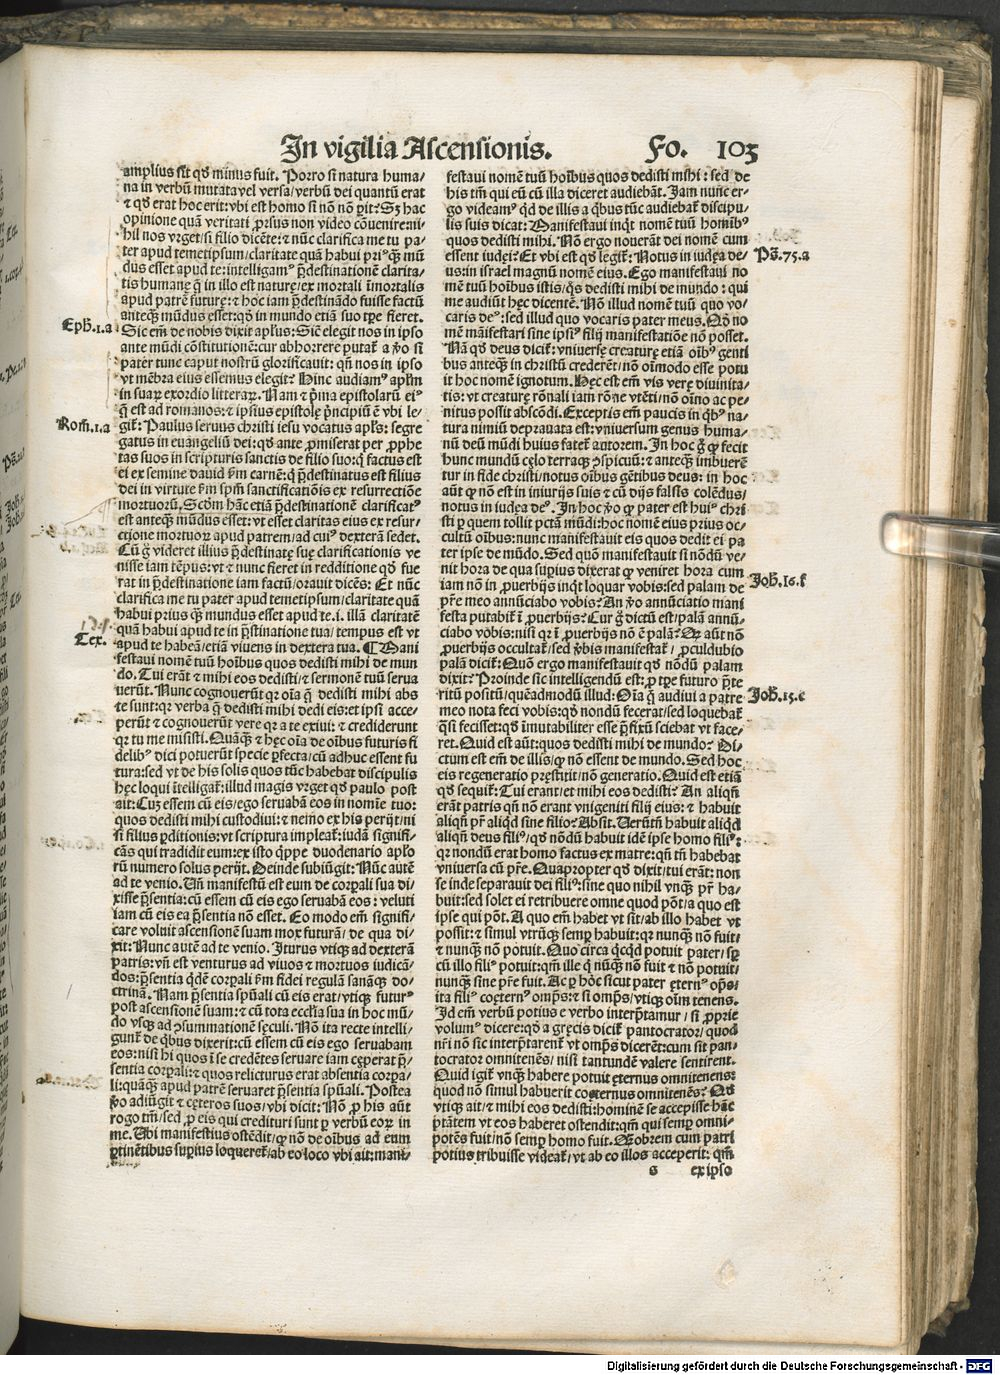 In vigilia Ascensionis. Fo. 103
amplius sit qđ minus fuit. Porro si natura huma-
na in verbũ mutata vel versa/verbũ dei quantũ erat
⁊ qđ erat hoc erit: vbi est homo si nõ nõ ꝑit? Sꝫ hac
opinione quã veritati ꝓrsus non video cõuenire: ni-
hil nos vrget/si filio dicẽte: ⁊ nũc clarifica me tu pa-
ter apud temetipsum/claritate quã habui priꝰꝙ̃ mũ
dus esset apud te: intelligamꝰ p̃destinationẽ clarita-
tis humanę q̃ in illo est naturę/ex mortali ĩmortalis
apud patrẽ futurę: ⁊ hoc iam p̃destinãdo fuisse factũ
anteꝙ̃ mũdus esset: qđ in mundo etiã suo tꝑe fieret.
Eph̃.1.a
Sic em̃ de nobis dixit apl̃us: Sic̃ elegit nos in ipso
ante mũdi cõstitutionẽ: cur abhorrere putat̃ a ṽo si
pater tunc caput nostrũ glorificauit: qñ nos in ipso
vt mẽbra eius essemus elegit? Hinc audiamꝰ apl̃m
in suaꝝ exordio litteraꝝ. Nam ⁊ p̃ma epistolarũ eiꝰ
q̃ est ad romanos: ⁊ ipsius epistolę p̃ncipiũ ẽ vbi le-
Rom̃.1.a
git̃: Paulus seruus christi iesu vocatus apl̃s: segre
gatus in euangeliũ dei: qđ ante ꝓmiserat per ꝓphe
tas suos in scripturis sanctis de filio suo: q̃ factus est
ei ex semine dauid ẜm carnẽ: q̃ p̃destinatus est filius
dei in virtute ẜm spm̃ sanctificatiõis ex resurrectiõe
mortuorũ. Scd̃m hãc etiã p̃destinationẽ clarificatꝰ
est anteꝙ̃ mũdus esset: vt esset claritas eius ex resur-
ectione mortuoꝝ apud patrem/ad cuiꝰ dexterã sedet.
Cũ g̃ videret illius p̃destinatę suę clarificationis ve
nisse iam tẽpus: vt ⁊ nunc fieret in redditione qđ fue
rat in p̃destinatione iam factũ/orauit dicẽs: Et nũc
clarifica me tu pater apud temetipsum/claritate quã
habui prius ꝙ̃ mundus esset apud te.i. illã claritatẽ
quã habui apud te in p̃destinatione tua/ tempus est vt
Tex.
apud te habeã/etiã viuens in dextera tua. ¶ Mani
festaui nomẽ tuũ hoĩbus quos dedisti mihi de mun
do. Tui erãt ⁊ mihi eos dedisti/⁊ sermonẽ tuũ serua
uerũt. Nunc cognouerũt qꝛ oĩa q̃ dedisti mihi abs
te sunt: qꝛ verba q̃ dedisti mihi dedi eis: et ipsi acce-
perũt ⁊ cognouerũt vere qꝛ a te exiui: ⁊ crediderunt
qꝛ tu me misisti. Quãꝙ̃ ⁊ hęc oĩa de oĩbus futuris fi
delibꝰ dici potuerũt specie ꝑfecta/cũ adhuc essent fu
tura: sed vt de his solis quos tũc habebat discipulis
hęc loqui ĩtelligat̃: illud magis vrget qđ paulo post
ait: Cuꝫ essem cũ eis/ego seruabã eos in noĩe tuo:
quos dedisti mihi custodiui: ⁊ nemo ex his perijt/ni
si filius ꝑditionis: vt scriptura impleat̃: iudã signifi-
cãs qui tradidit eum: ex isto q̃ppe duodenario apl̃o
rũ numero solus perijt. Deinde subiũgit: Nũc autẽ
ad te venio. Vñ manifestũ est eum de corꝑali sua di-
xisse p̃sentia: cũ essem cũ eis ego seruabã eos: veluti
iam cũ eis ea p̃sentia nõ esset. Eo modo em̃ signifi-
care voluit ascensionẽ suam mox futurã/ de qua di-
xit: Nunc autẽ ad te venio. Iturus vtiqꝫ ad dexterã
patris: vñ est venturus ad viuos ⁊ mortuos iudicã-
dos: p̃sentia q̃dẽ corꝑali ẜm fidei regulã sanãqꝫ do-
ctrinã. Nam p̃sentia spũali cũ eis erat/vtiqꝫ futurꝰ
post ascensionẽ suam: ⁊ cũ tota ecclĩa sua in hoc mũ/
do vsqꝫ ad ↄsummationẽ sęculi. Nõ ita recte intelli/
gunt̃ de qb̃us dixerit: cũ essem cũ eis ego seruabam
eos: nisi hi quos ĩ se credẽtes seruare iam cęperat p̃-
sentia corꝑali: ⁊ quos relicturus erat absentia corꝑa-
li: quãꝙ̃ apud patrẽ seruaret p̃sentia spũali. Postea
ṽo adiũgit ⁊ cęteros suos/vbi dicit: Nõ ꝓ his aũt
rogo tm̃/sed ꝓ eis qui credituri sunt ꝑ verbũ eoꝝ in
me. Vbi manifestius ostẽdit/ꝙ nõ de oĩbus ad eum
ꝑtinẽtibus supius loqueret̃/ab eo loco vbi ait: mani-
festaui nomẽ tuũ hoĩbus quos dedisti mihi: sed de
his tm̃ qui eũ cũ illa diceret audiebãt. Iam nunc er-
go videamꝰ qd̃ de illis a qb̃us tũc audiebat̃ discipu-
lis suis dicat: Manifestaui inqt̃ nomẽ tuũ homĩbꝰ
quos dedisti mihi. Nõ ergo nouerãt dei nomẽ cum
Ps̃.75.a
essent iudęi? Et vbi est qđ legit̃: Notus in iudęa de-
us: in israel magnũ nomẽ eius. Ego manifestaui no
mẽ tuũ hoĩbus istis/q̃s dedisti mihi de mundo: qui
me audiũt hęc dicentẽ. Nõ illud nomẽ tuũ quo vo-
caris deꝰ: sed illud quo vocaris pater meus. Qđ no
mẽ mãifestari sine ipsiꝰ filij manifestatiõe nõ posset.
Nã qđ deus dicit̃: vniuersę creaturę etiã oĩbꝰ genti
bus anteꝙ̃ in christũ crederẽt/ nõ oĩmodo esse potu
it hoc nomẽ ignotum. Hęc est em̃ vis verę diuinita/
tis: vt creaturę rõnali iam rõne vtẽti/nõ oĩno ac pe-
nitus possit abscõdi. Exceptis em̃ paucis in qb̃ꝰ na-
tura nimiũ deprauata est: vniuersum genus huma-
nũ deũ mũdi huius fatet̃ autorem. In hoc g̃ ꝙ fecit
hunc mundũ cęlo terraqꝫ ↄspicuũ: ⁊ anteꝙ̃ imbuerẽ
tur in fide christi/notus oĩbus gẽtibus deus: in hoc
aũt ꝙ nõ est in iniurijs suis ⁊ cũ dijs falsis colẽdus/
notus in iudęa deꝰ. In hoc ṽo ꝙ pater est huiꝰ chri
sti ꝑ quem tollit pctã mũdi: hoc nomẽ eius prius oc-
cultũ oĩbus: nunc manifestauit eis quos dedit ei pa
ter ipse de mũdo. Sed quõ manifestauit si nõdũ ve-
nit hora de qua supius dixerat ꝙ veniret hora cum
Joh̃.16.f
iam nõ in ꝓuerbijs inqt̃ loquar vobis: sed palam de
pr̃e meo annũciabo vobis? An ṽo annũciatio mani
festa putabit̃ ĩ ꝓuerbijs? Cur g̃ dictũ est/palã annũ-
ciabo vobis: nisi qꝛ ĩ ꝓuerbijs nõ ẽ palã? Qꝛ aũt nõ
ꝓuerbijs occultat̃/sed ṽbis manifestat̃/ ꝓculdubio
palã dicit̃: Quõ ergo manifestauit qđ nõdũ palam
dixit? Proinde sic intelligendũ est: ꝓ tꝑe futuro p̃te
Joh̃.15.c
ritũ positũ/quẽadmodũ illud: Oĩa q̃ audiui a patre
meo nota feci vobis: qđ nondũ fecerat/sed loquebat̃
q̃si fecisset: qđ ĩmutabiliter esse p̃fixũ sciebat vt face/
ret. Quid est aũt: quos dedisti mihi de mundo? Di/
ctum est em̃ de illis/ꝙ nõ essent de mundo. Sed hoc
eis regeneratio pręstitit/nõ generatio. Quid est etiã
qđ sequit̃: Tui erant/et mihi eos dedisti? An aliqñ
erãt patris qñ nõ erant vnigeniti filij eius: ⁊ habuit
aliqñ pr̃ aliqd̃ sine filio? Absit. Verũtñ habuit aliqd̃
aliqñ deus filiꝰ/qđ nõdũ habuit idẽ ipse homo filiꝰ:
qꝛ nondũ erat homo factus ex matre: qñ tñ habebat
vniuersa cũ pr̃e. Quapropter qđ dixit/tui erãt: non
se inde separauit dei filiꝰ: sine quo nihil vnꝙ̃ pr̃ ha-
buit: sed solet ei retribuere omne quod põt/a quo est
ipse qui põt. A quo em̃ habet vt sit/ab illo habet vt
possit: ⁊ simul vtrũqꝫ semp̃ habuit: qꝛ nunꝙ̃ nõ fuit/
⁊ nunꝙ̃ nõ potuit. Quo circa qcqd̃ potuit pater/ sp̃
cũ illo filiꝰ potuit: qm̃ ille q̃ nũꝙ̃ nõ fuit ⁊ nõ potuit/
nunꝙ̃ sine pr̃e fuit. Ac ꝑ hõc sicut pater ęternꝰ ops̃/
ita filiꝰ coęternꝰ omps̃: ⁊ si omps̃/vtiqꝫ oĩm tenens.
Id em̃ verbũ potius e verbo interp̃tamur/ si ꝓprie
volumꝰ dicere: qđ a gręcis dicit̃ pantocrator/ quod
nr̃i nõ sic interp̃tarent̃ vt omps̃ dicerẽt: cum sit pan-
tocrator omnitenẽs/ nisi tantundẽ valere sentirent.
Quid igit̃ vnꝙ̃ habere potuit ęternus omnitenens:
quod nõ simul habuerit coęternus omnitenẽs? Qđ
vtiqꝫ ait/⁊ mihi eos dedisti: hominẽ se accepisse hãc
ptãtem vt eos haberet ostendit: qm̃ qui semp̃ omni-
potẽs fuit/nõ semp̃ homo fuit. Quobrem cum patri
potius tribuisse videat̃/vt ab eo illos acceperit: qm̃
s ex ipso
Digitalisierung gefördert durch die Deutsche Forschungsgemeinschaft - DFG